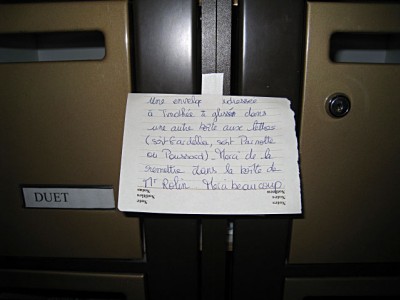 une enveloppe adressée
à Timothée à glisser dans
une autre boîte aux lettres
(soit Gardella, soit Parnotte
ou Poussard). Merci de la
remettre dans la boîte de
Mr Rolin. Merci beaucoup.
DUET